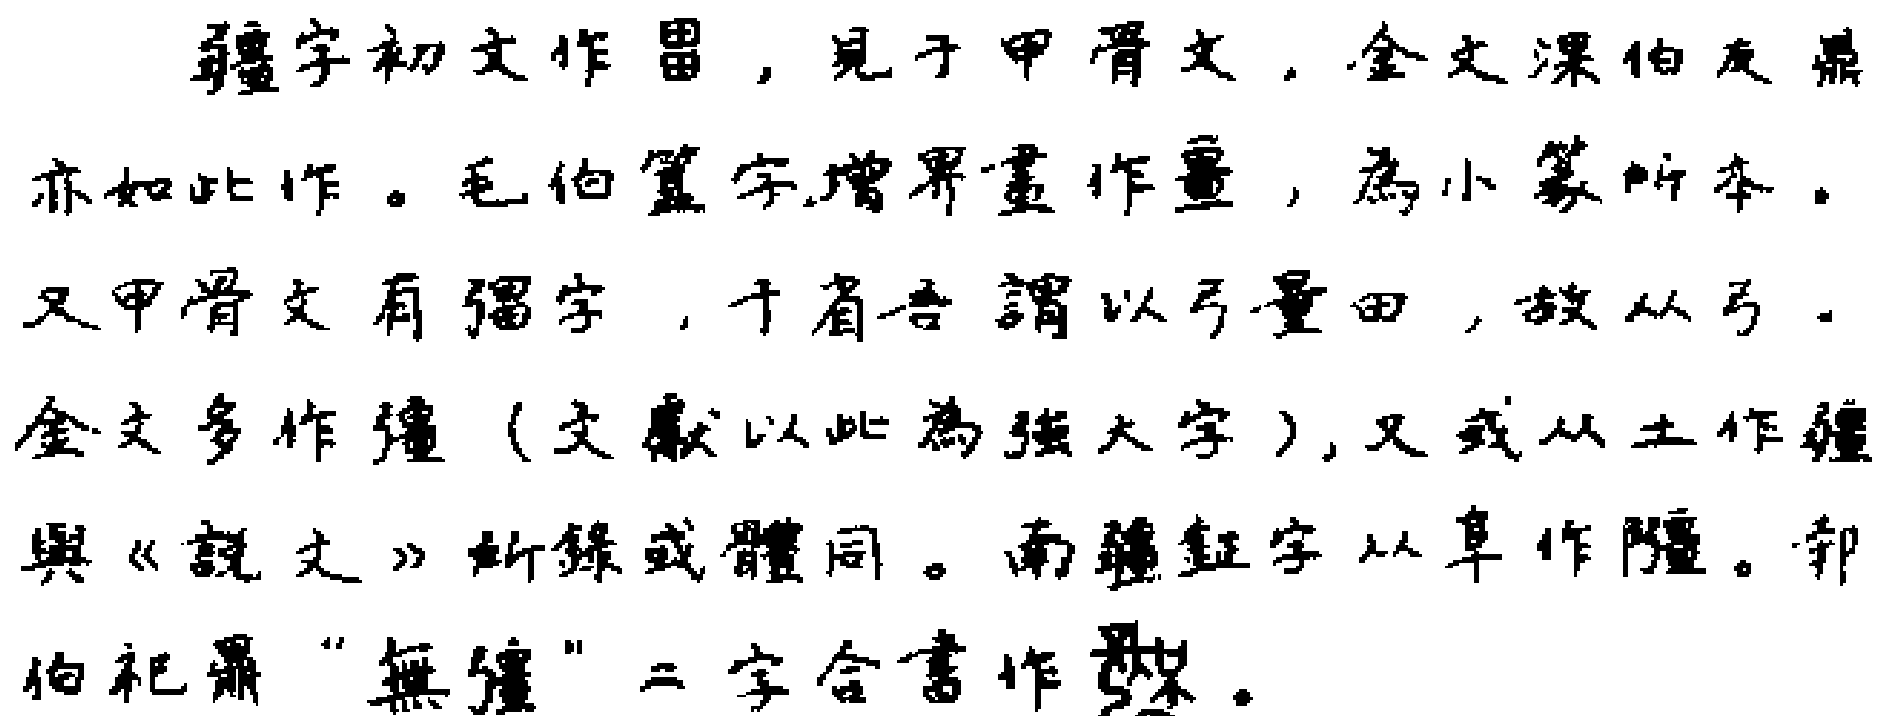 疆字初文作畕，見于甲骨文．金文深伯友鼎
亦如此作。毛伯簋字增界畫作畺，為小篆所本．
又甲骨文有彊字，于省吾謂以弓量田，故从弓．
金文多作彊（文獻以此為强大字），又或从土作疆
與《説文》所錄或體同。南疆鉦字从阜作。邿
伯祀鼎“無彊”二字合書作．